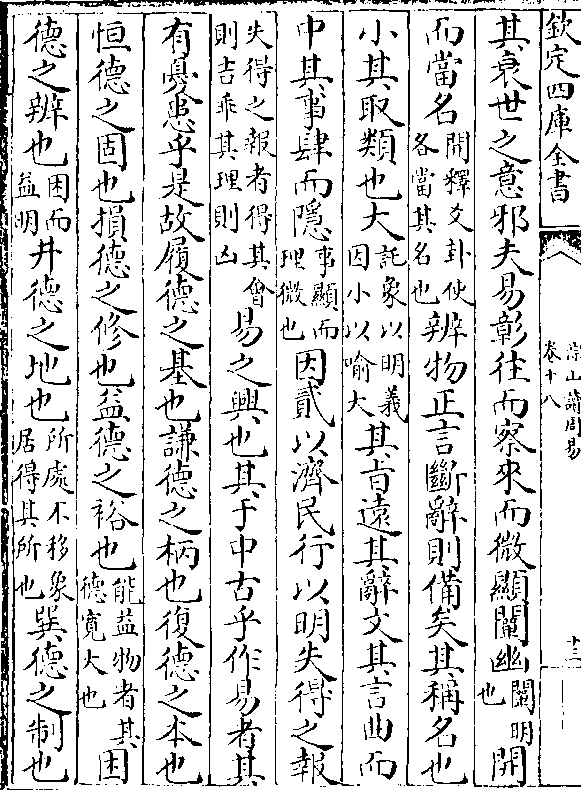 欽定四庫全書
淙山讀周易
卷十八
十三
其衰世之意邪夫易彰往而察來而微顯闡幽闡明也開
而當名開釋爻卦使各當其名也辨物正言斷辭則備矣其稱名也
小其取類也大託象以明義因小以喻大其旨遠其辭文其言曲而
中其事肆而隱事顯而理微也因貳以濟民行以明失得之報
失得之報者得其會則吉乖其理則凶易之興也其于中古乎作易者其
有憂患乎是故履德之基也謙德之柄也復德之本也
恒德之固也損德之修也益德之裕也能益物者其德寬大也困
德之辨也困而益明井德之地也所處不移象居得其所也巽德之制也